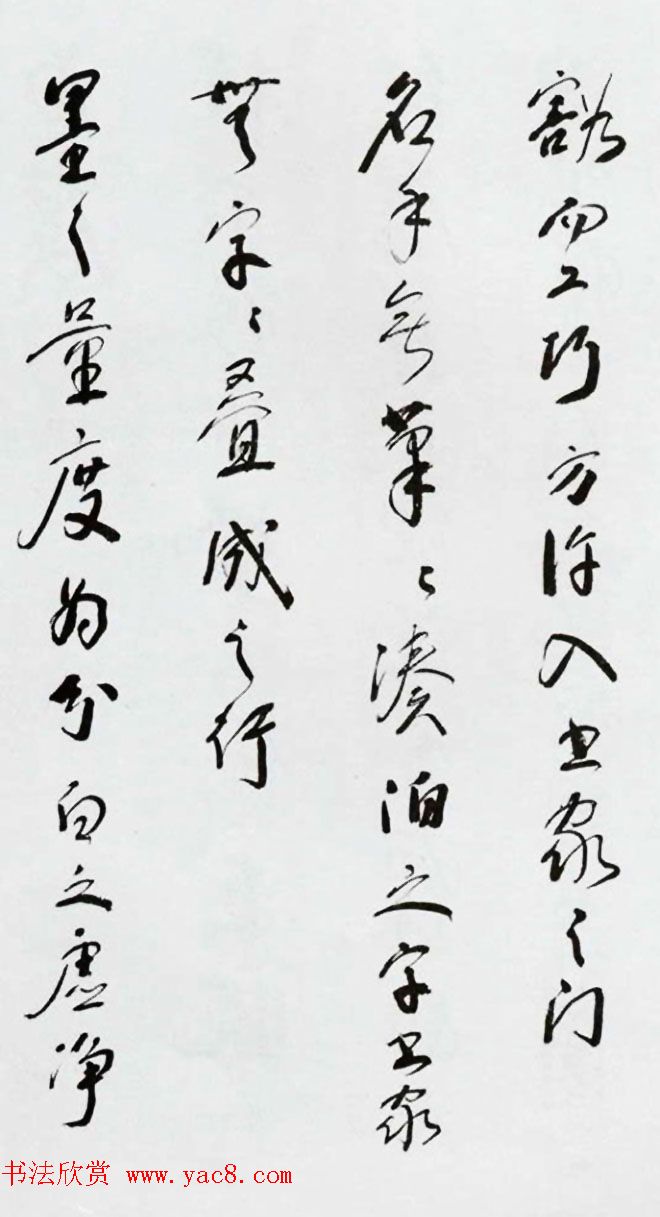 豁而工巧方许入书家之门
名手无笔々凑泊之字书家
無字々叠成之行
墨之量度为分白之虚净
书法欣赏 www.yac8.com